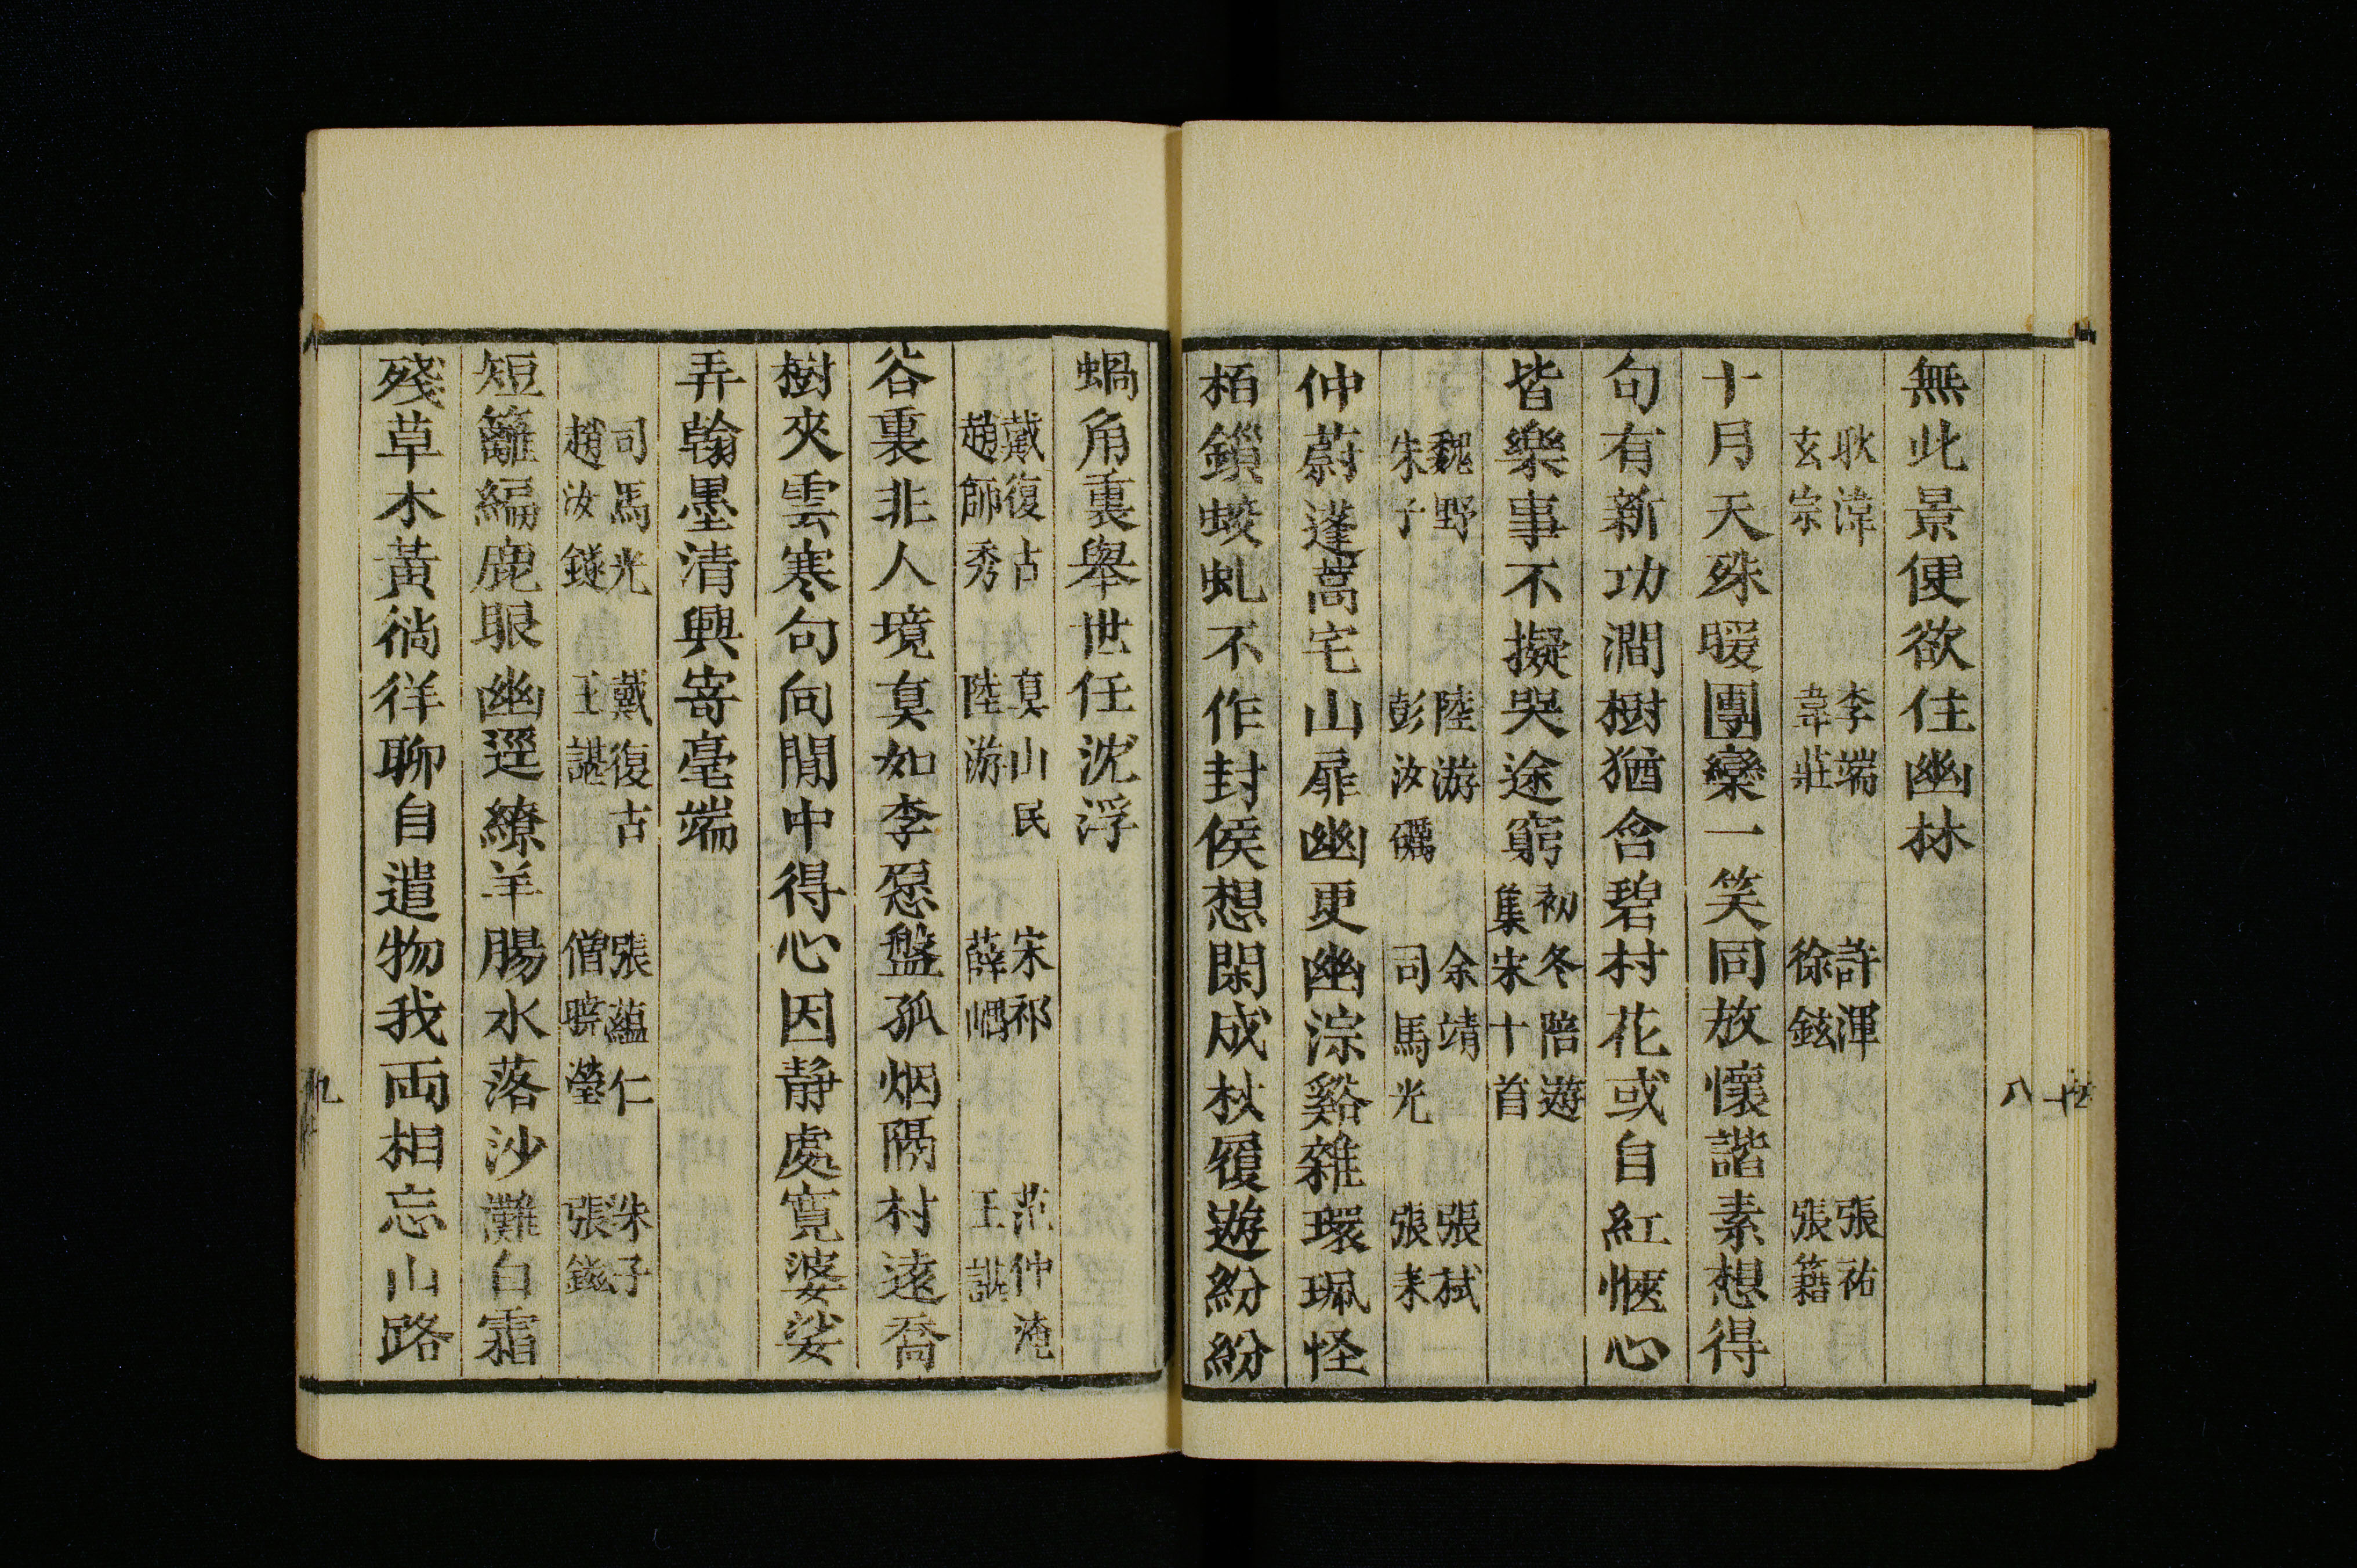 無此景便欲住幽林
耿湋 李端 許渾 張祐
玄宗 韋莊 徐鉉 張籍
十月天殊暖團欒一笑同放懷諧素想得
句有新功澗樹猶含碧村花或自紅愜心
皆樂事不擬哭途窮
初冬陪遊
集宋十首
魏野 陸游 余靖 張栻
朱子 彭汝礪 司馬光 張耒
仲蔚蓬蒿宅山扉幽更幽淙谿雜環珮怪
栢鎻蛟虬不作封侯想閑成杖履遊紛紛
八
蝸角裏舉世任沈浮
戴復古 真山民 宋祁 范仲淹
趙師秀 陸游 薛嵎 王諶
谷裏非人境真如李愿盤孤烟隔村遠喬
樹夾雲寒句向閒中得心因静處寛婆娑
弄翰墨清興寄毫端
司馬光 戴復古 張蘊仁 朱子
趙汝鐩 王諶 僧曉瑩 張鎡
短籬編鹿眼幽逕繚羊腸水落沙灘白霜
殘草木黃徜徉聊自遣物我両相忘山路
九